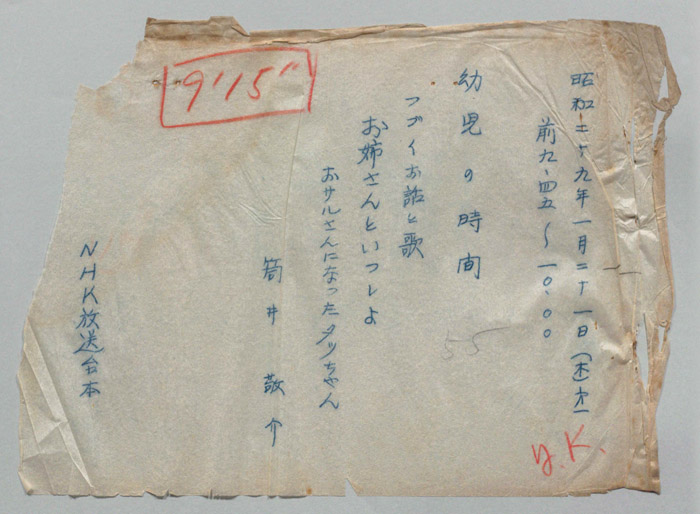 昭和二十九年一月二十一日(木)才一
前九、四五〜一〇、〇〇
幼児の時間
つゞくお話と歌
お姉さんといつしよ
おサルさんになったタッちゃん
筒井敬介
NHK放送台本
9'15"
55
y.K.